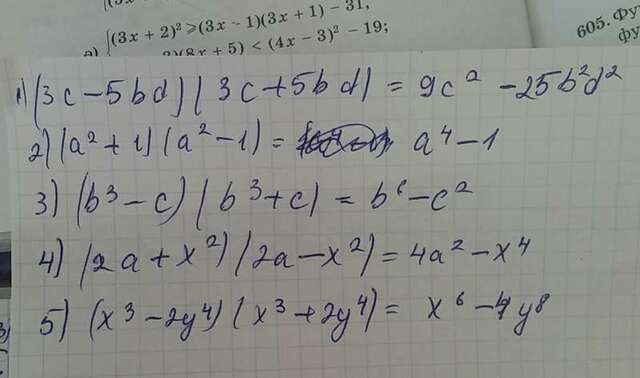 (3x + 2)² ⩾ (3x − 1)(3x + 1) − 31,
(8x + 5) < (4x − 3)² − 19;
605. Фу
фу
1) (3c − 5bd)(3c + 5bd) = 9c² − 25b²d²
2) (a² + 1)(a² − 1) = a⁴ − 1
3) (b³ − c)(b³ + c) = b⁶ − c²
4) (2a + x²)(2a − x²) = 4a² − x⁴
5) (x³ − 2y⁴)(x³ + 2y⁴) = x⁶ − 4y⁸